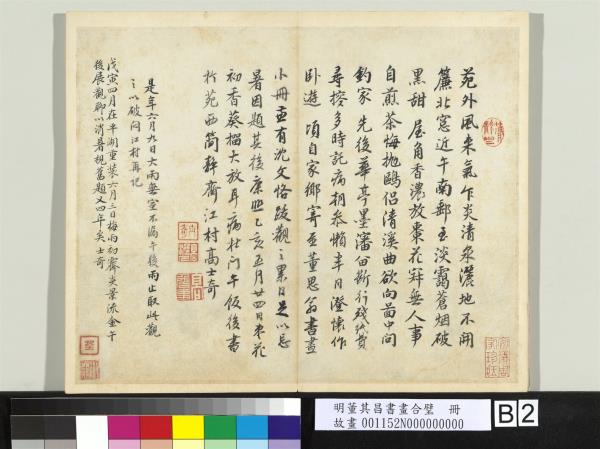 苑外風來氣乍炎清泉灑地不開
簾北窓近午南郵至淡靄蒼烟破
黑甜 屋角香濃放棗花寂無人事
自煎茶悔抛鷗侶清溪曲欲向畫中問
釣家 先後華亭墨瀋
尋撦多時託病相參懶半月澄懷作
臥遊 頃自家鄉寄至董思翁書畫
小冊並有沈文恪跋觀之累日足以忘
暑因題其後康熙乙亥五月廿四日棗花
初香葵榴大放耳病杜門午飯後書
於苑西簡靜齋江村高士奇
是年六月九日大雨無室不漏午後雨止取此觀
之以破悶江村再記
戊寅四月在平湖重裝六月三日梅雨初霽炎景流金午
後展觀聊以消暑視舊題又四年矣士奇
明董其昌書畫合璧 冊
故畫 001152N000000000
B2